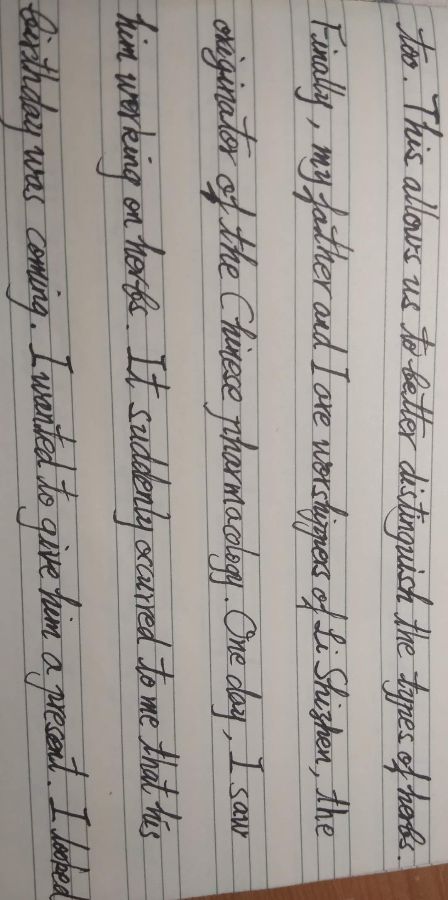 too. This allows us to better distinguish the types of herbs.
Finally, my father and I are worshippers of Li Shizhen, the
originator of the Chinese pharmacology. One day, I saw
him working on herbs. It suddenly occurred to me that his
birthday was coming. I wanted to give him a present. I looked